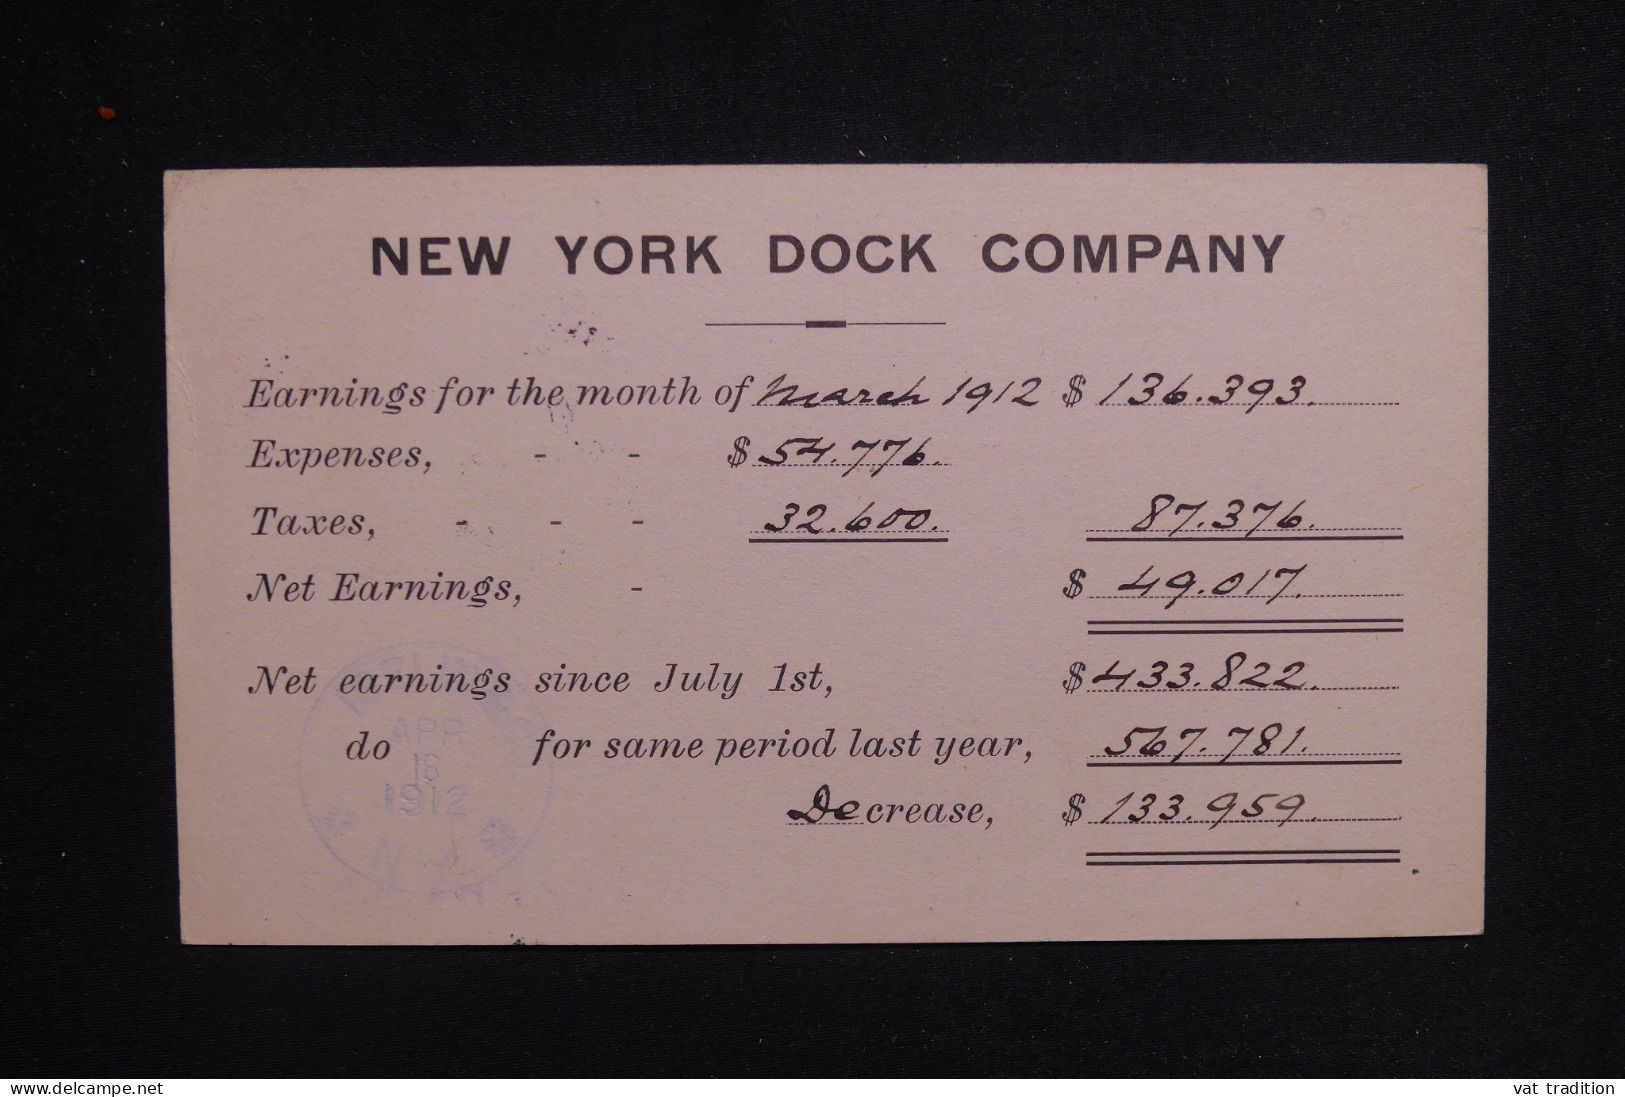 NEW YORK DOCK COMPANY
Earnings for the month of March 1912 $ 136.393.
Expenses, - - $ 54.776.
Taxes, - - - 32.600. 87.376.
Net Earnings, - $ 49.017.
Net earnings since July 1st, $ 433.822.
do for same period last year, 567.781.
Decrease, $ 133.959.
APR
18
1912
N. J.
delcampe.net
vat tradition